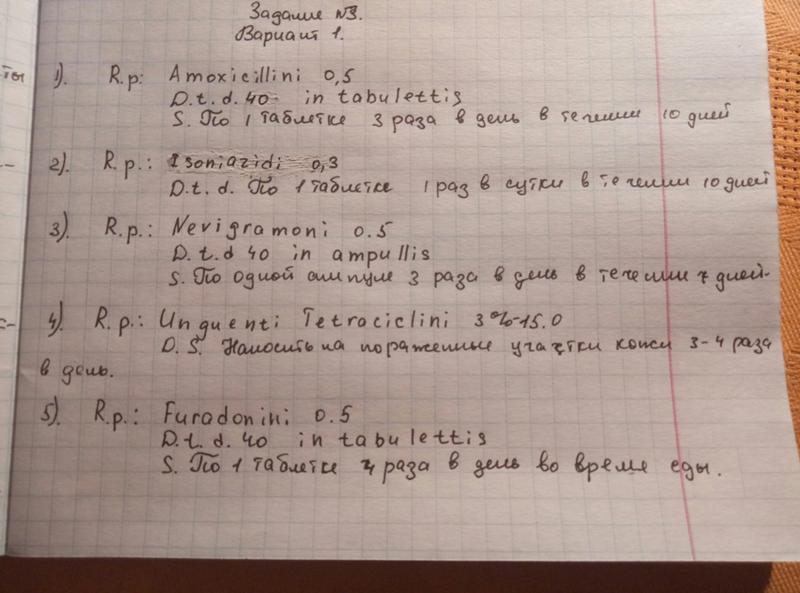 Задание №3.
Вариант 1.
ты
1). R.p: Amoxicillini 0,5
D.t.d. 40 in tabulettis
S. По 1 таблетке 3 раза в день в течении 10 дней
2). R.p.: Isoniazidi 0,3
D.t.d. По 1 таблетке 1 раз в сутки в течении 10 дней
3). R.p.: Nevigramoni 0.5
D.t.d 40 in ampullis
S. По одной ампуле 3 раза в день в течении 7 дней.
4). R.p.: Unguenti Tetraciclini 3%-15.0
D.S. Наносить на пораженные участки кожи 3-4 раза
в день.
5). R.p.: Furadonini 0.5
D.t.d. 40 in tabulettis
S. По 1 таблетке 4 раза в день во время еды.